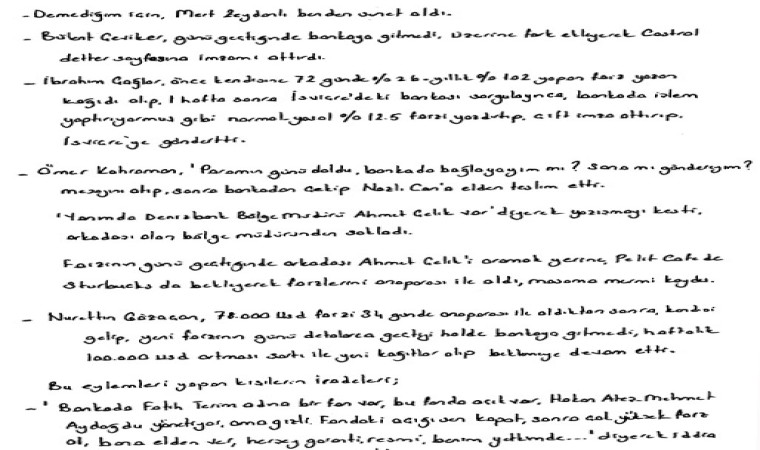 - Demediğim için, Mert Zeydanlı benden senet aldı.
- Bülent Çeviker, günü geçtiğinde bankaya gitmedi, üzerine fark ekleyerek Castrol
defter sayfasına imzamı attırdı.
- İbrahim Çağlar, önce kendisine 72 günde %26-yıllık %102 yapan faiz yazan
kağıdı alıp, 1 hafta sonra İsviçre'deki bankası sorgulayınca, bankada işlem
yaptırıyormuş gibi normal yasal %12.5 faizi yazdırtıp, çift imza attırıp,
İsviçre'ye gönderttti.
- Ömer Kahraman, 'Paramın günü doldu, bankada bağlayayım mı? Sana mı göndereyim?
mesajını atıp, sonra bankadan çekip Nazlı Can'a elden teslim etti.
'Yanımda Denizbank Bölge Müdürü Ahmet Çelik var' diyerek yazışmayı kesti,
arkadaşı olan bölge müdüründen sakladı.
Faizinin günü geçtiğinde arkadaşı Ahmet Çelik'i aramak yerine, Pelit Cafe de
Sturbucks da bekleyerek faizlerini anaparası ile aldı, masama mermi koydu.
- Nurettin Gözaçan, 78.000 Usd faizi 34 günde anaparası ile aldıktan sonra, kendisi
gelip, yeni faizinin günü defalarca geçtiği halde bankaya gitmedi, haftalık
100.000 usd artması şartı ile yeni kağıtlar alıp beklemeye devam etti.
Bu eylemleri yapan kişilerin iradeleri;
- ' Bankada Fatih Terim adına bir fon var, bu fonda açık var, Hakan Ateş-Mehmet
Aydoğdu yönetiyor, ama gizli. Fondaki açığı sen kapat, sonra çok yüksek faiz
al, bana elden ver, herşey garanti, resmi, benim yetkimde...' diyerek iddia